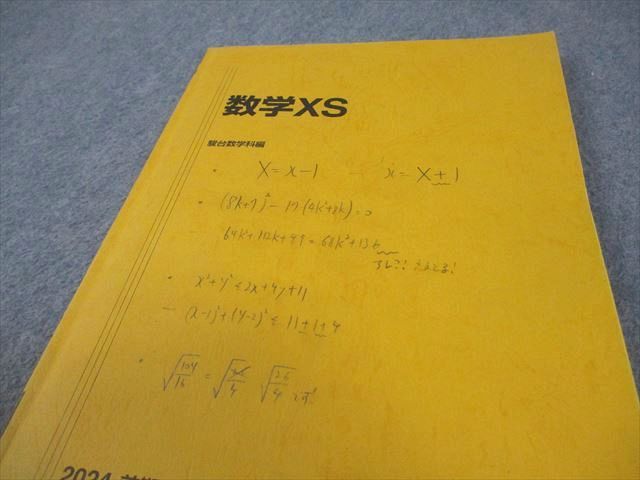 数学XS
駿台数学科編
・ X=x-1 — x=X+1
・ (8k+7)²-17(4k²+8k)=0
64k²+112k+49=68k²+136
・ x²+y²≤2x+4y+11
— (x-1)²+(y-2)²≤11+1+4
・ √104/16 = √ /4 √26/4
2024 前期